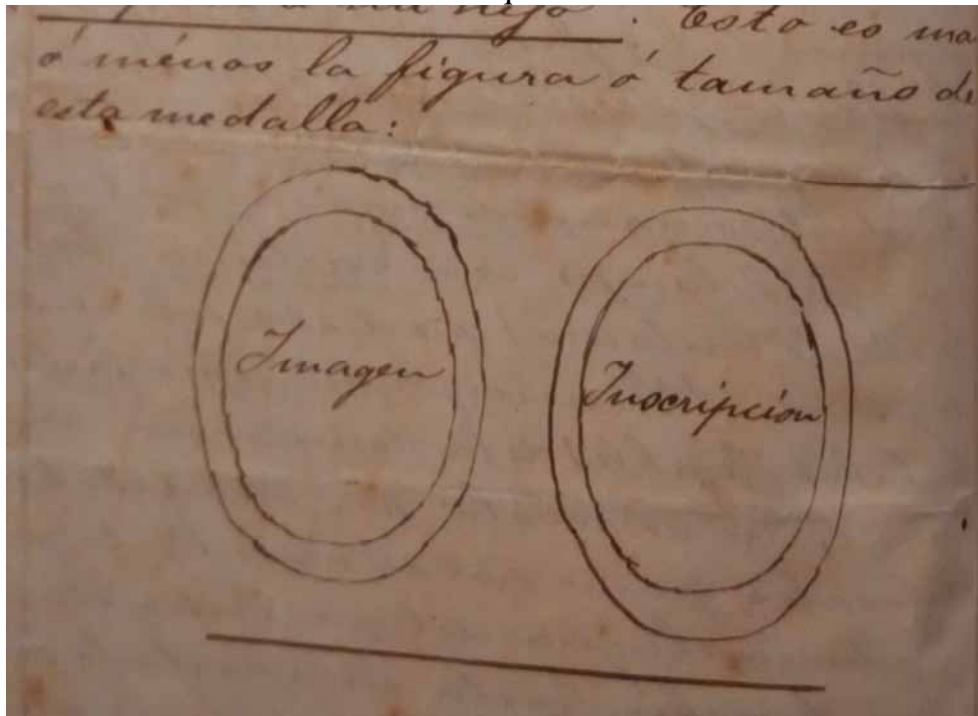 mi hijo. Esto es ma
ó ménos la figura ó tamaño de
esta medalla:
Imagen
Inscripcion